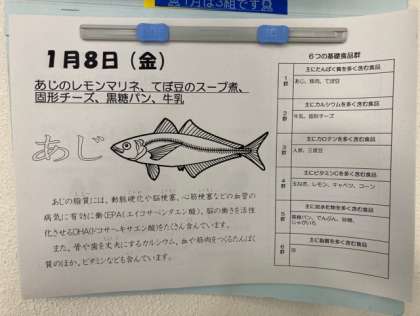 1月は3組です
1月8日（金）
あじのレモンマリネ、てぼ豆のスープ煮、
固形チーズ、黒糖パン、牛乳
あじ
あじの脂質には、動脈硬化や脳梗塞、心筋梗塞などの血管の
病気に有効に働くEPA(エイコサペンタエン酸)、脳の働きを活性
化させるDHA(ドコサヘキサエン酸)をたくさん含んでいます。
また、骨や歯を丈夫にするカルシウム、血や筋肉をつくるたんぱく
質のほか、ビタミンなども含んでいます。
6つの基礎食品群
1群
主にたんぱく質を多く含む食品
あじ、豚肉、てぼ豆
2群
主にカルシウムを多く含む食品
牛乳、固形チーズ
3群
主にカロテンを多く含む食品
人参、
4群
主にビタミンCを多く含む食品
玉ねぎ、レモン、キャベツ、コーン
5群
主に炭水化物を多く含む食品
黒糖パン、でんぷん、砂糖、
じゃがいも
6群
主に脂質を多く含む食品
油